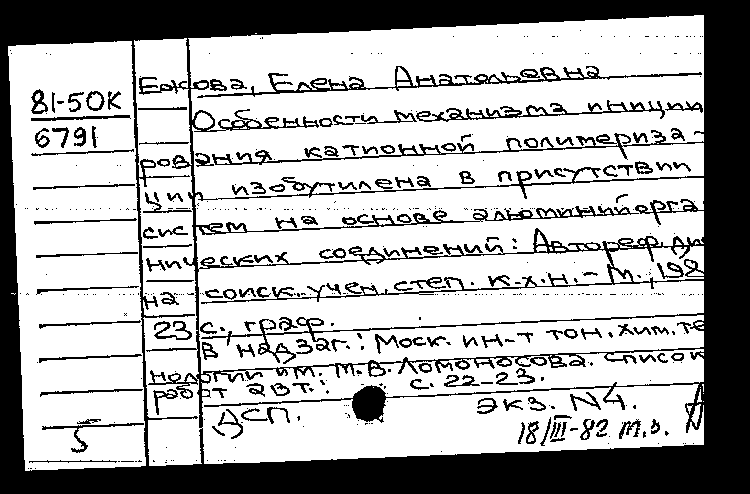 81-50К
6791
Ежова, Елена Анатольевна
Особенности механизма иниции
рования катионной полимериза-
ции изобутилена в присутствии
систем на основе алюминийорга
нических соединений: Автореф. дис
на соиск. учен. степ. к.х.н. - М., 198
23 с., граф.
В надзаг.: Моск. ин-т тон. хим. те
нологии им. М.В. Ломоносова. Список
работ авт.: с. 22-23.
ДСП.
экз. N4.
5
18/III-82 т.з.